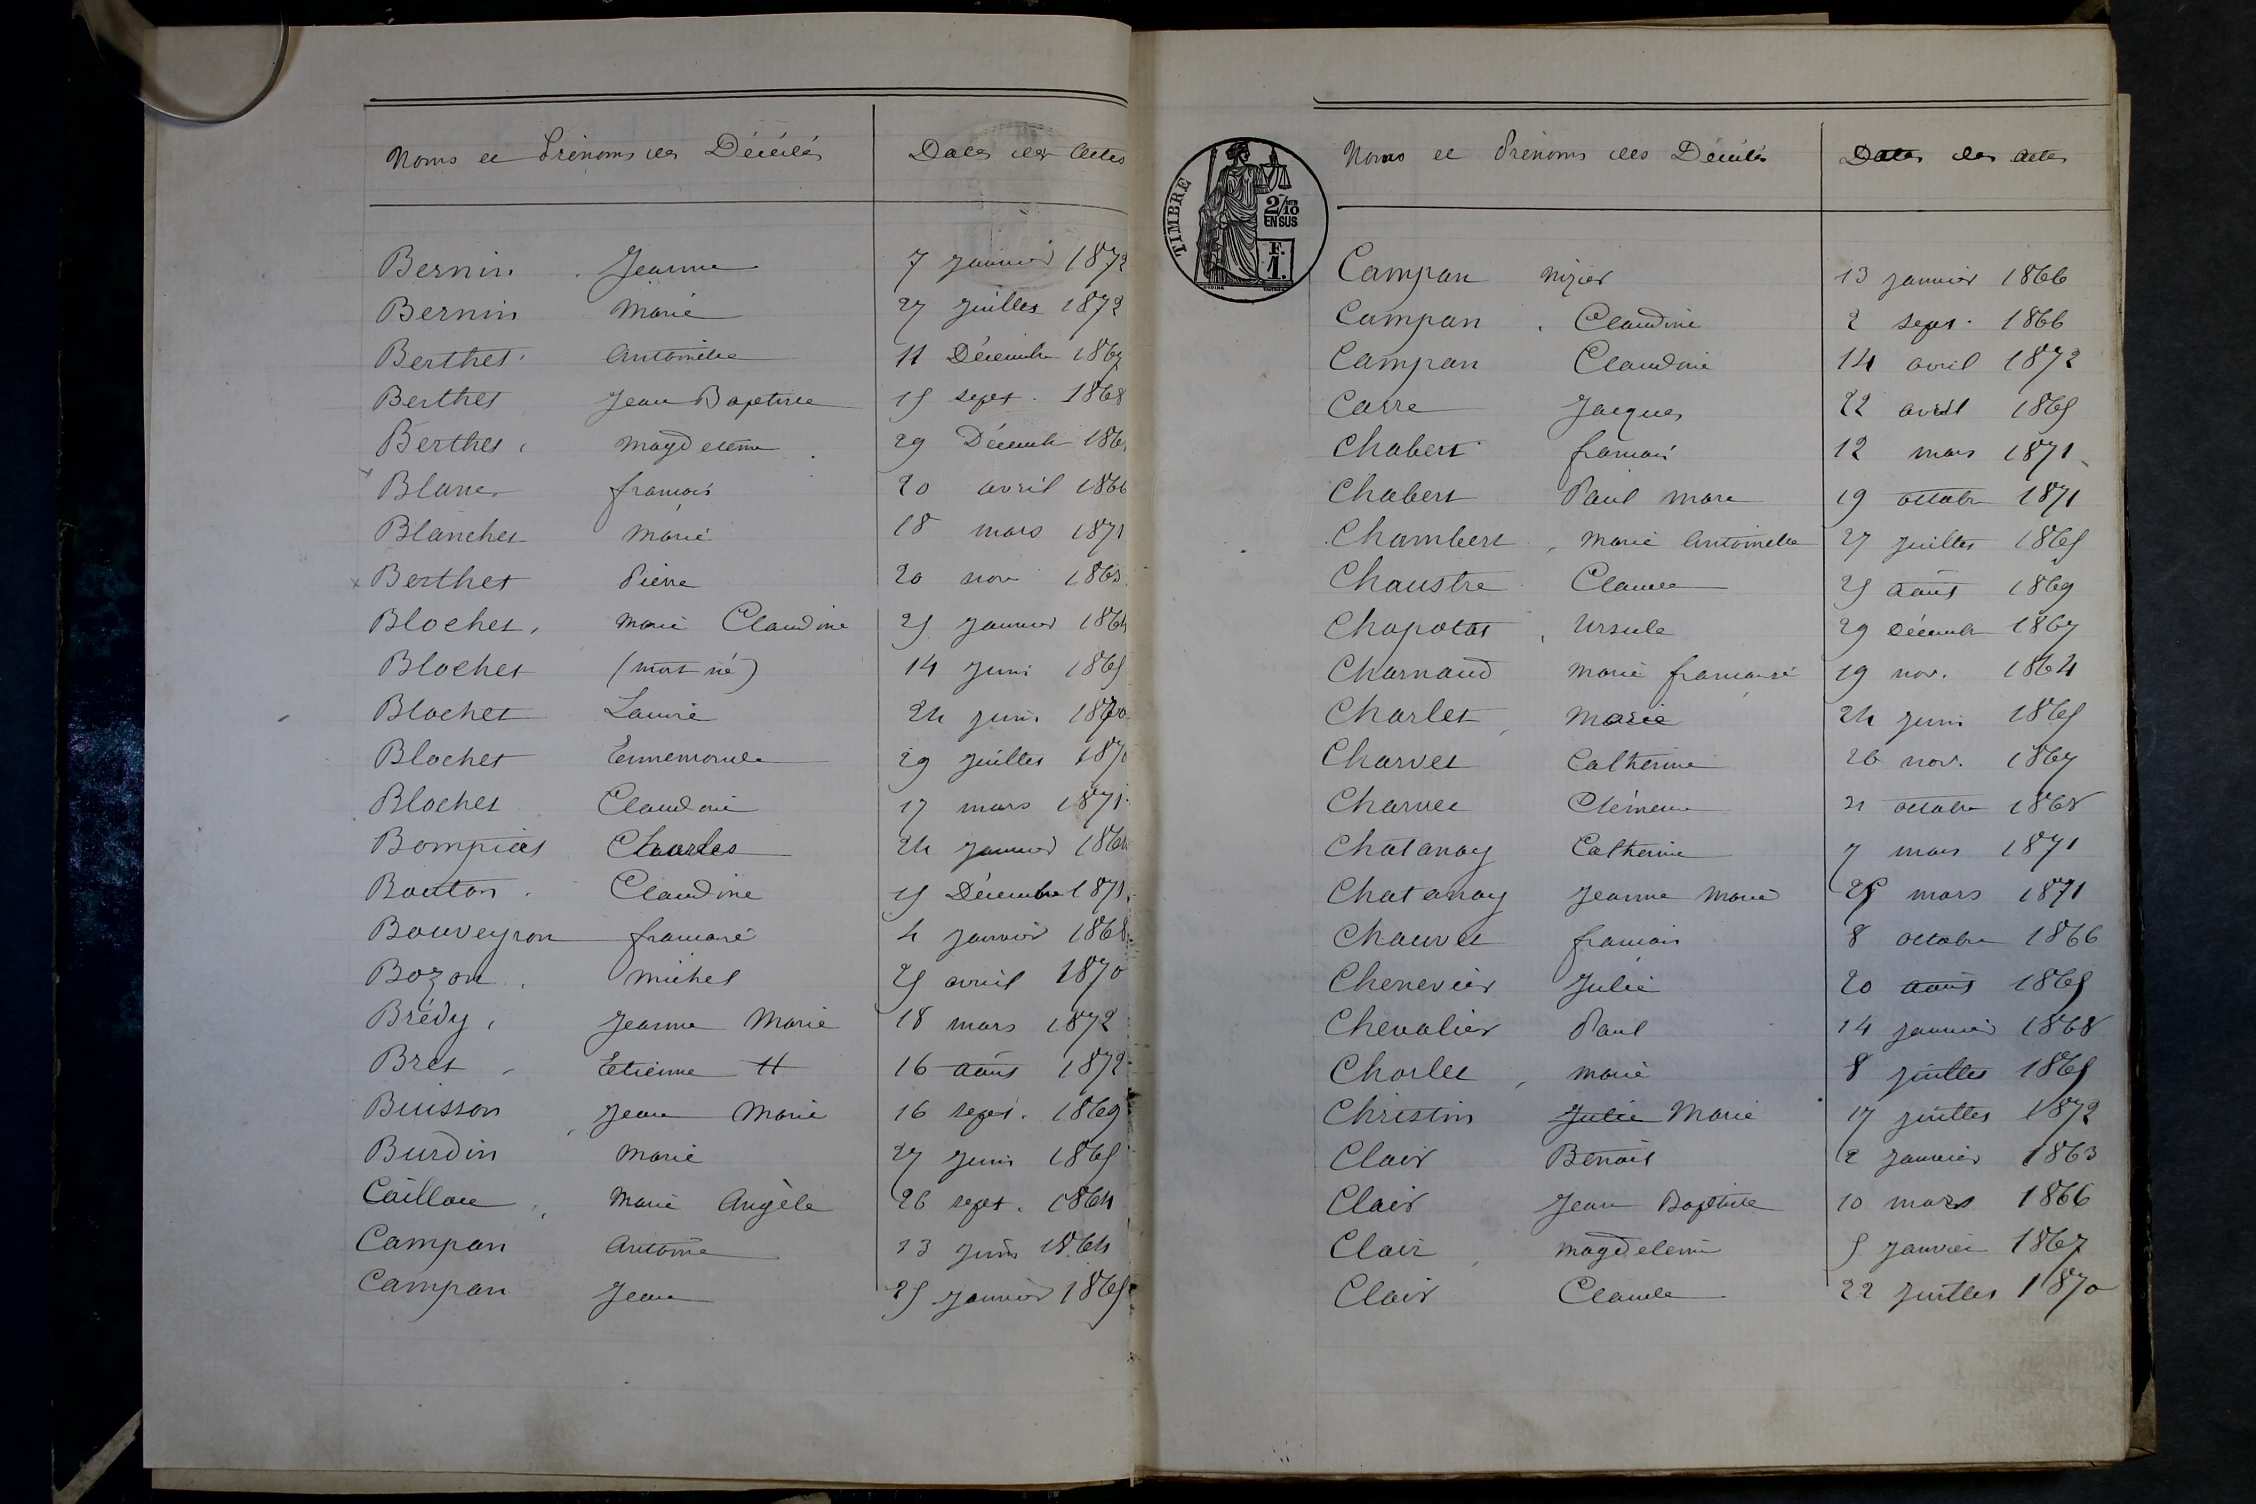 Noms et Prénoms des Décédés Dates des Actes
Bernin Jeanne 7 janvier 1872
Bernin Marie 27 juillet 1872
Berthet Antoinette 11 Décembre 1867
Berthet Jean Baptiste 15 sept. 1868
Berthet Magdeleine 29 Décembre
Blanc françois 20 avril 1866
Blanchet Marie 18 mars 1871
Berthet Pierre 20 nov
Blochet Marie Claudine 25 janvier 1864
Blochet (mort né) 14 juin 1865
Blochet Laurie 24 juin 1870
Blochet Ennemonde 29 juillet 1870
Blochet Claudine 17 mars 1871
Bompier Charles 24 janvier 1864
Bouton Claudine 15 Décembre 1871
Bouveyron françoise 4 janvier 1868
Bozon Michel 25 avril 1870
Brédy Jeanne Marie 18 mars 1872
Bret Etienne H 16 août 1872
Buisson Jean Marie 16 sept. 1869
Burdin Marie 27 juin 1865
Caillou Marie Angèle 26 sept. 1864
Campan Antoine 13 juin 1864
Campan Jean 25 janvier 1865
TIMBRE
2/10
EN SUS
F.
1.
Noms et Prénoms des Décédés Dates des Actes
Campan Nizier 13 janvier 1866
Campan Claudine 2 sept. 1866
Campan Claudine 14 avril 1872
Carre Jacques 22 avril 1865
Chabert françois 12 mars 1871
Chabert Paul Marc 19 octobre 1871
Chambert Marie Antoinette 27 juillet 1865
Chaustre Claude 25 août 1869
Chapotat Ursule 29 Décembre 1867
Charnaud Marie françoise 19 nov. 1864
Charlet Marie 24 juin 1865
Charvet Catherine 26 nov. 1867
Charvet Clémence 21 octobre 1868
Chatanay Catherine 7 mars 1871
Chatanay Jeanne Marie 25 mars 1871
Chauvet françois 8 octobre 1866
Chenevier Julie 20 août 1865
Chevalier Paul 14 janvier 1868
Chorlet Marie 8 juillet 1865
Christin Julie Marie 17 juillet 1872
Clair Benoît 2 janvier 1863
Clair Jean Baptiste 10 mars 1866
Clair Magdeleine 5 janvier 1867
Clair Claude 22 juillet 1870